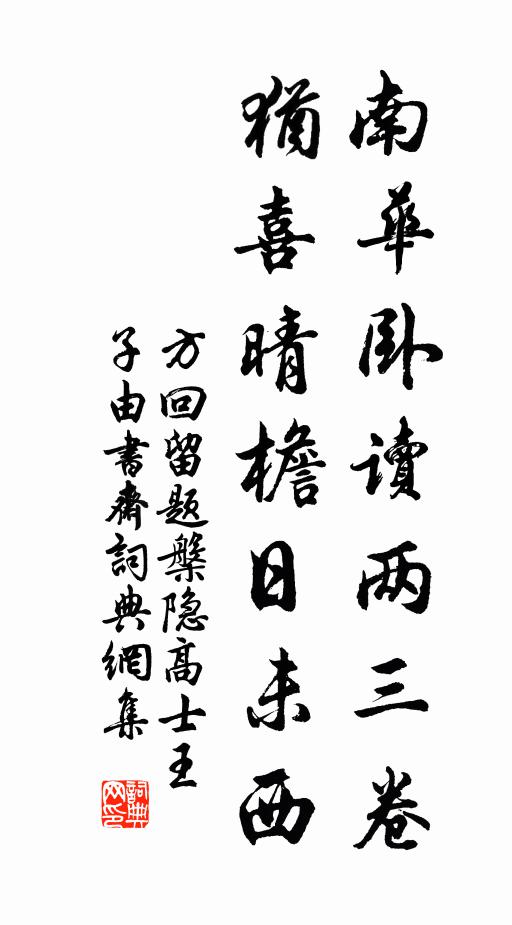 南華卧讀两三卷
猶喜晴檐日未西
方回留題槃隐高士王
子由書齋詞典網集
詞典
网印